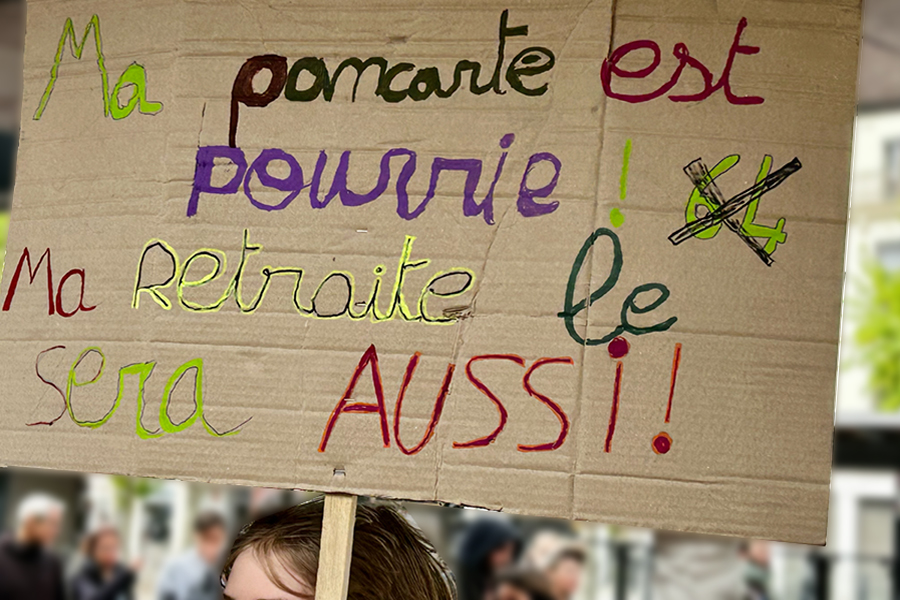 Ma pancarte est
pourrie ! 64
Ma Retraite le
sera AUSSi !